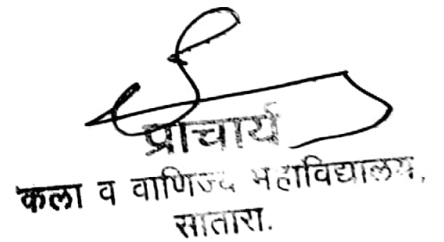 प्राचार्य
कला व वाणिज्य महाविद्यालय,
सातारा.